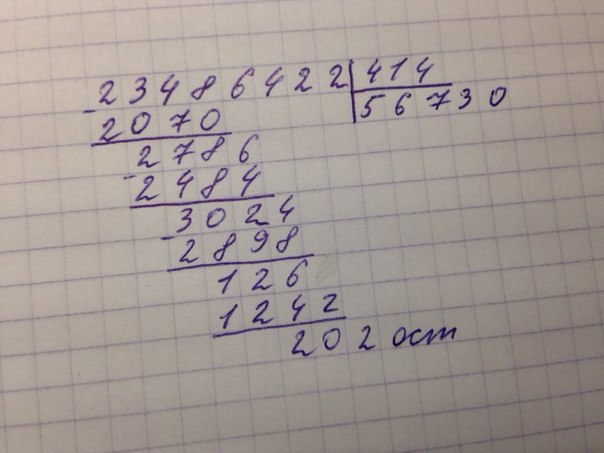 23486422|414
-2070 56730
2786
-2484
3024
-2898
126
1242
202 ост